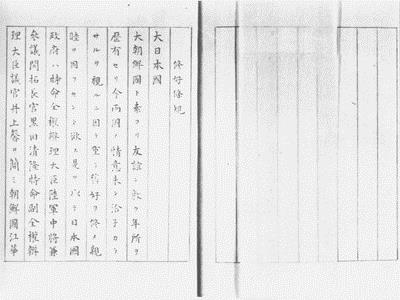 修好條規
大日本國
大朝鮮國ト素ヨリ友誼ニ敦ク年所ヲ
歴有セリ今両國ノ情意未タ洽子カラ
サルヲ視ルニ因テ重テ舊好ヲ修メ親
睦ヲ固フセント欲ス是ヲ以テ日本國
政府ハ特命全權辨理大臣陸軍中將兼
參議開拓長官黒田清隆特命副全權辨
理大臣議官井上馨ヲ簡ミ朝鮮國江華